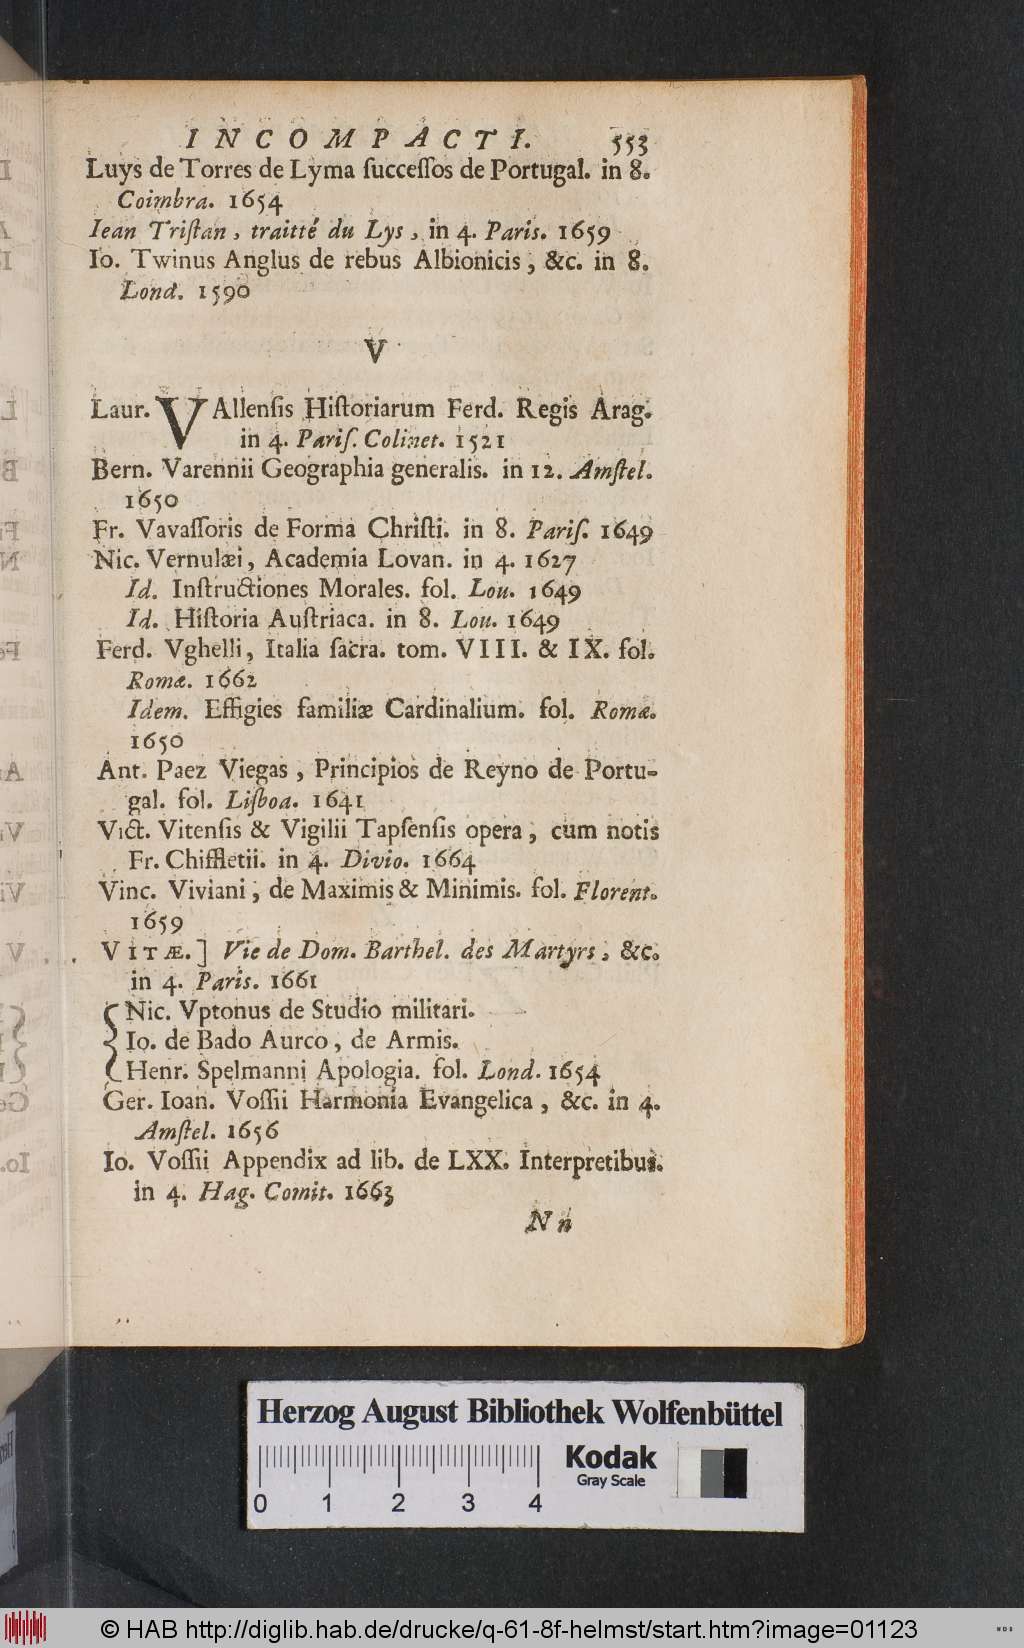 INCOMPACTI. 553
Luys de Torres de Lyma ſucceſſos de Portugal. in 8.
Coimbra. 1654
Iean Triſtan, traitté du Lys, in 4. Paris. 1659
Io. Twinus Anglus de rebus Albionicis, &c. in 8.
Lond. 1590
V
Laur. VAllenſis Hiſtoriarum Ferd. Regis Arag.
in 4. Pariſ. Colinet. 1521
Bern. Varennii Geographia generalis. in 12. Amſtel.
1650
Fr. Vavaſſoris de Forma Chriſti. in 8. Pariſ. 1649
Nic. Vernulæi, Academia Lovan. in 4. 1627
Id. Inſtructiones Morales. fol. Lou. 1649
Id. Hiſtoria Auſtriaca. in 8. Lou. 1649
Ferd. Vghelli, Italia ſacra. tom. VIII. & IX. fol.
Romæ. 1662
Idem. Effigies familiæ Cardinalium. fol. Romæ.
1650
Ant. Paez Viegas, Principios de Reyno de Portu-
gal. fol. Liſboa. 1641
Vict. Vitenſis & Vigilii Tapſenſis opera, cum notis
Fr. Chiffletii. in 4. Divio. 1664
Vinc. Viviani, de Maximis & Minimis. fol. Florent.
1659
VITÆ.] Vie de Dom. Barthel. des Martyrs, &c.
in 4. Paris. 1661
{ Nic. Vptonus de Studio militari.
Io. de Bado Aurco, de Armis.
Henr. Spelmanni Apologia. fol. Lond. 1654
Ger. Ioan. Voſſii Harmonia Evangelica, &c. in 4.
Amſtel. 1656
Io. Voſſii Appendix ad lib. de LXX. Interpretibus.
in 4. Hag. Comit. 1663
N n
Herzog August Bibliothek Wolfenbüttel
Kodak
Gray Scale
0 1 2 3 4
© HAB http://diglib.hab.de/drucke/q-61-8f-helmst/start.htm?image=01123